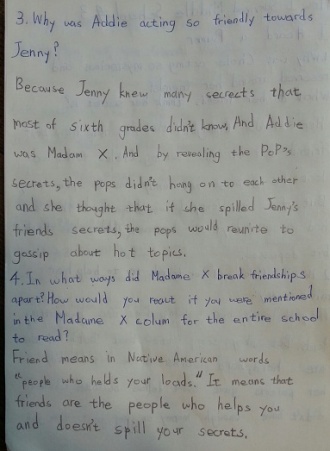 3. Why was Addie acting so friendly towards
Jenny?
Because Jenny knew many secrects that
most of sixth grades didn't know, And Addie
was Madam X. And by resealing the PoP's
secrets, the pops didn't hang on to each other
and she thought that if she spilled Jenny's
friends secrets, the pops would reunite to
gossip about hot topics.
4. In what ways did Madame X break friendships
apart? How would you react if you were mentioned
in the Madame X colum for the entire school
to read?
Friend means in Native American words
"people who holds your loads." It means that
friends are the people who helps you
and doesn't spill your secrets.